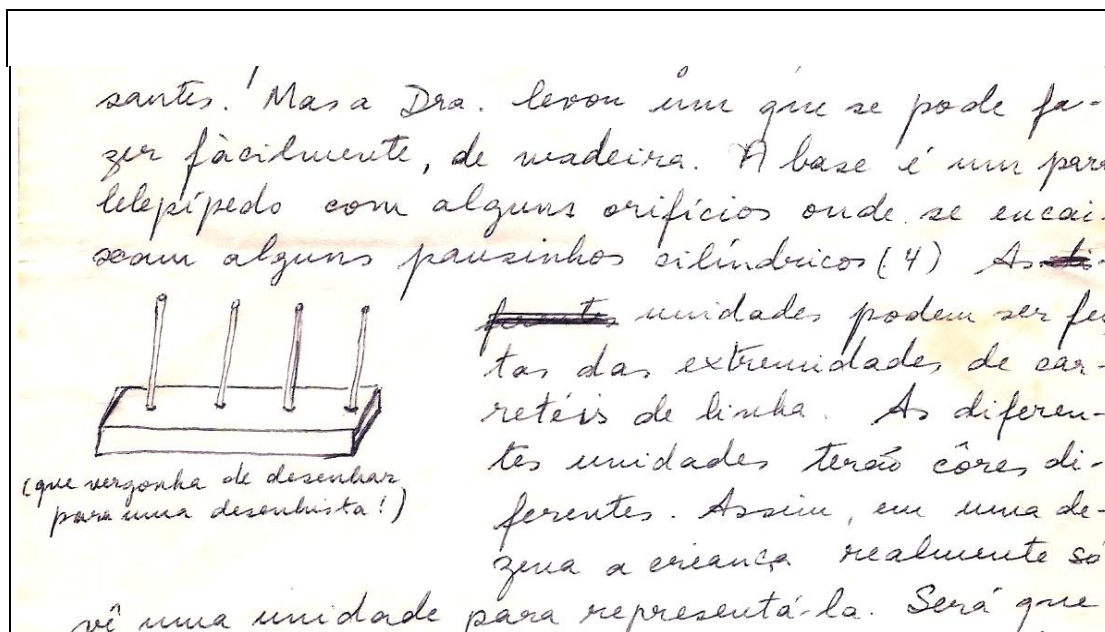 santes. Mas a Dra. levou um que se pode fa-
zer fàcilmente, de madeira. A base é um para
lelepípedo com alguns orifícios onde se encai-
xam alguns pausinhos silíndricos (4) As di-
ferentes unidades podem ser fei
tas das extremidades de car-
retéis de linha. As diferen-
tes unidades terão côres di-
ferentes. Assim, em uma de-
zena a criança realmente só
vê uma unidade para representá-la. Será que
(que vergonha de desenhar
para uma desenhista!)